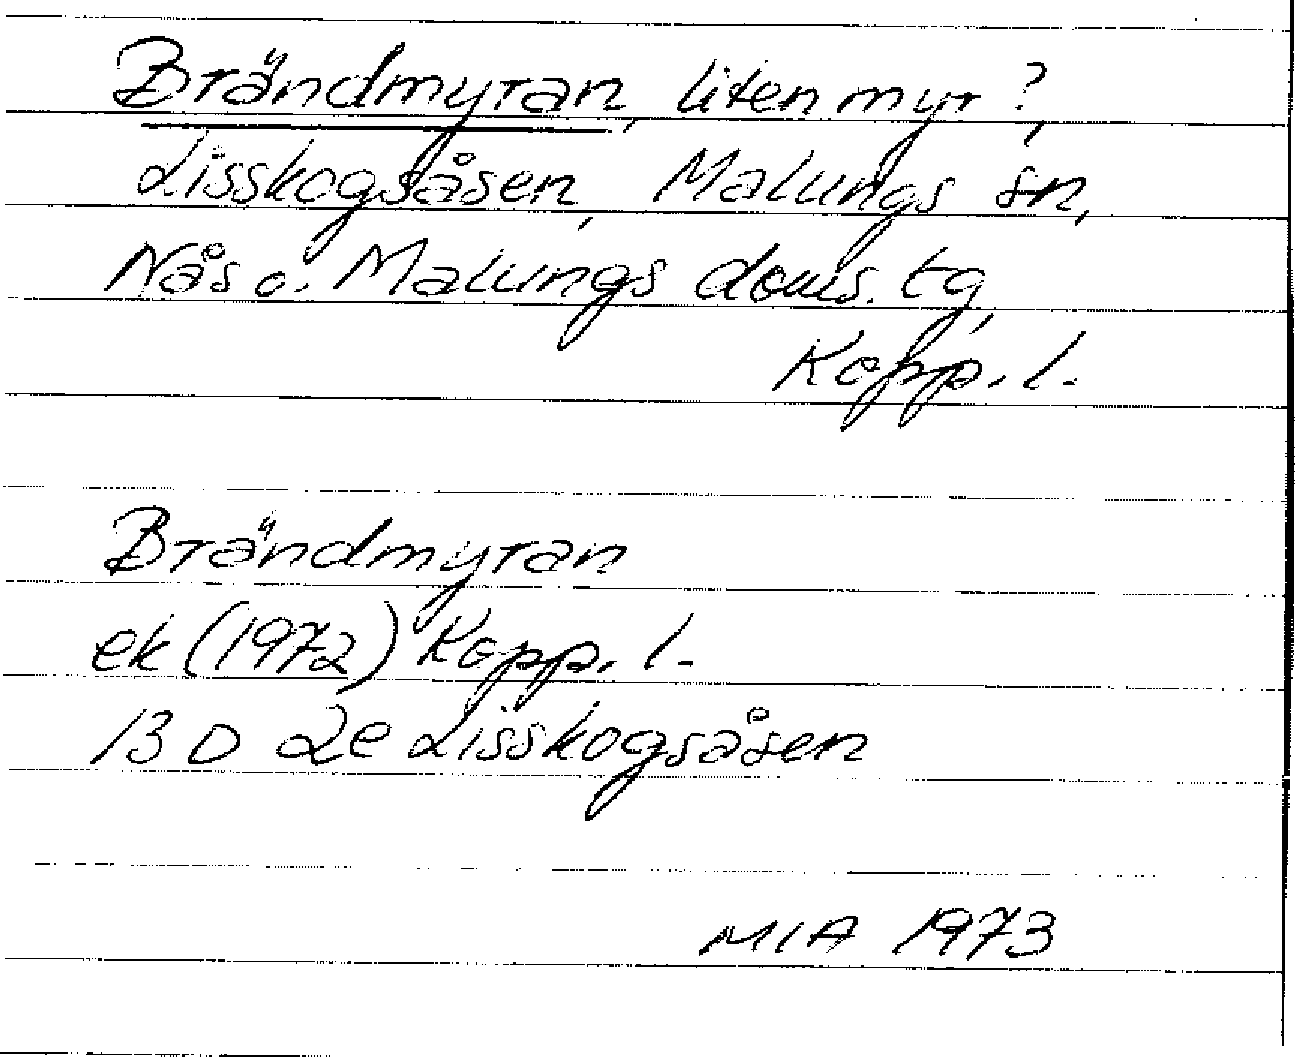 Brändmyran, liten myr?,
Lisskogsåsen, Malungs sn,
Nås o. Malungs doms. tg,
Kopp. l.
Brändmyran
ek (1972) Kopp. l.
13 D 2e Lisskogsåsen
MIA 1973